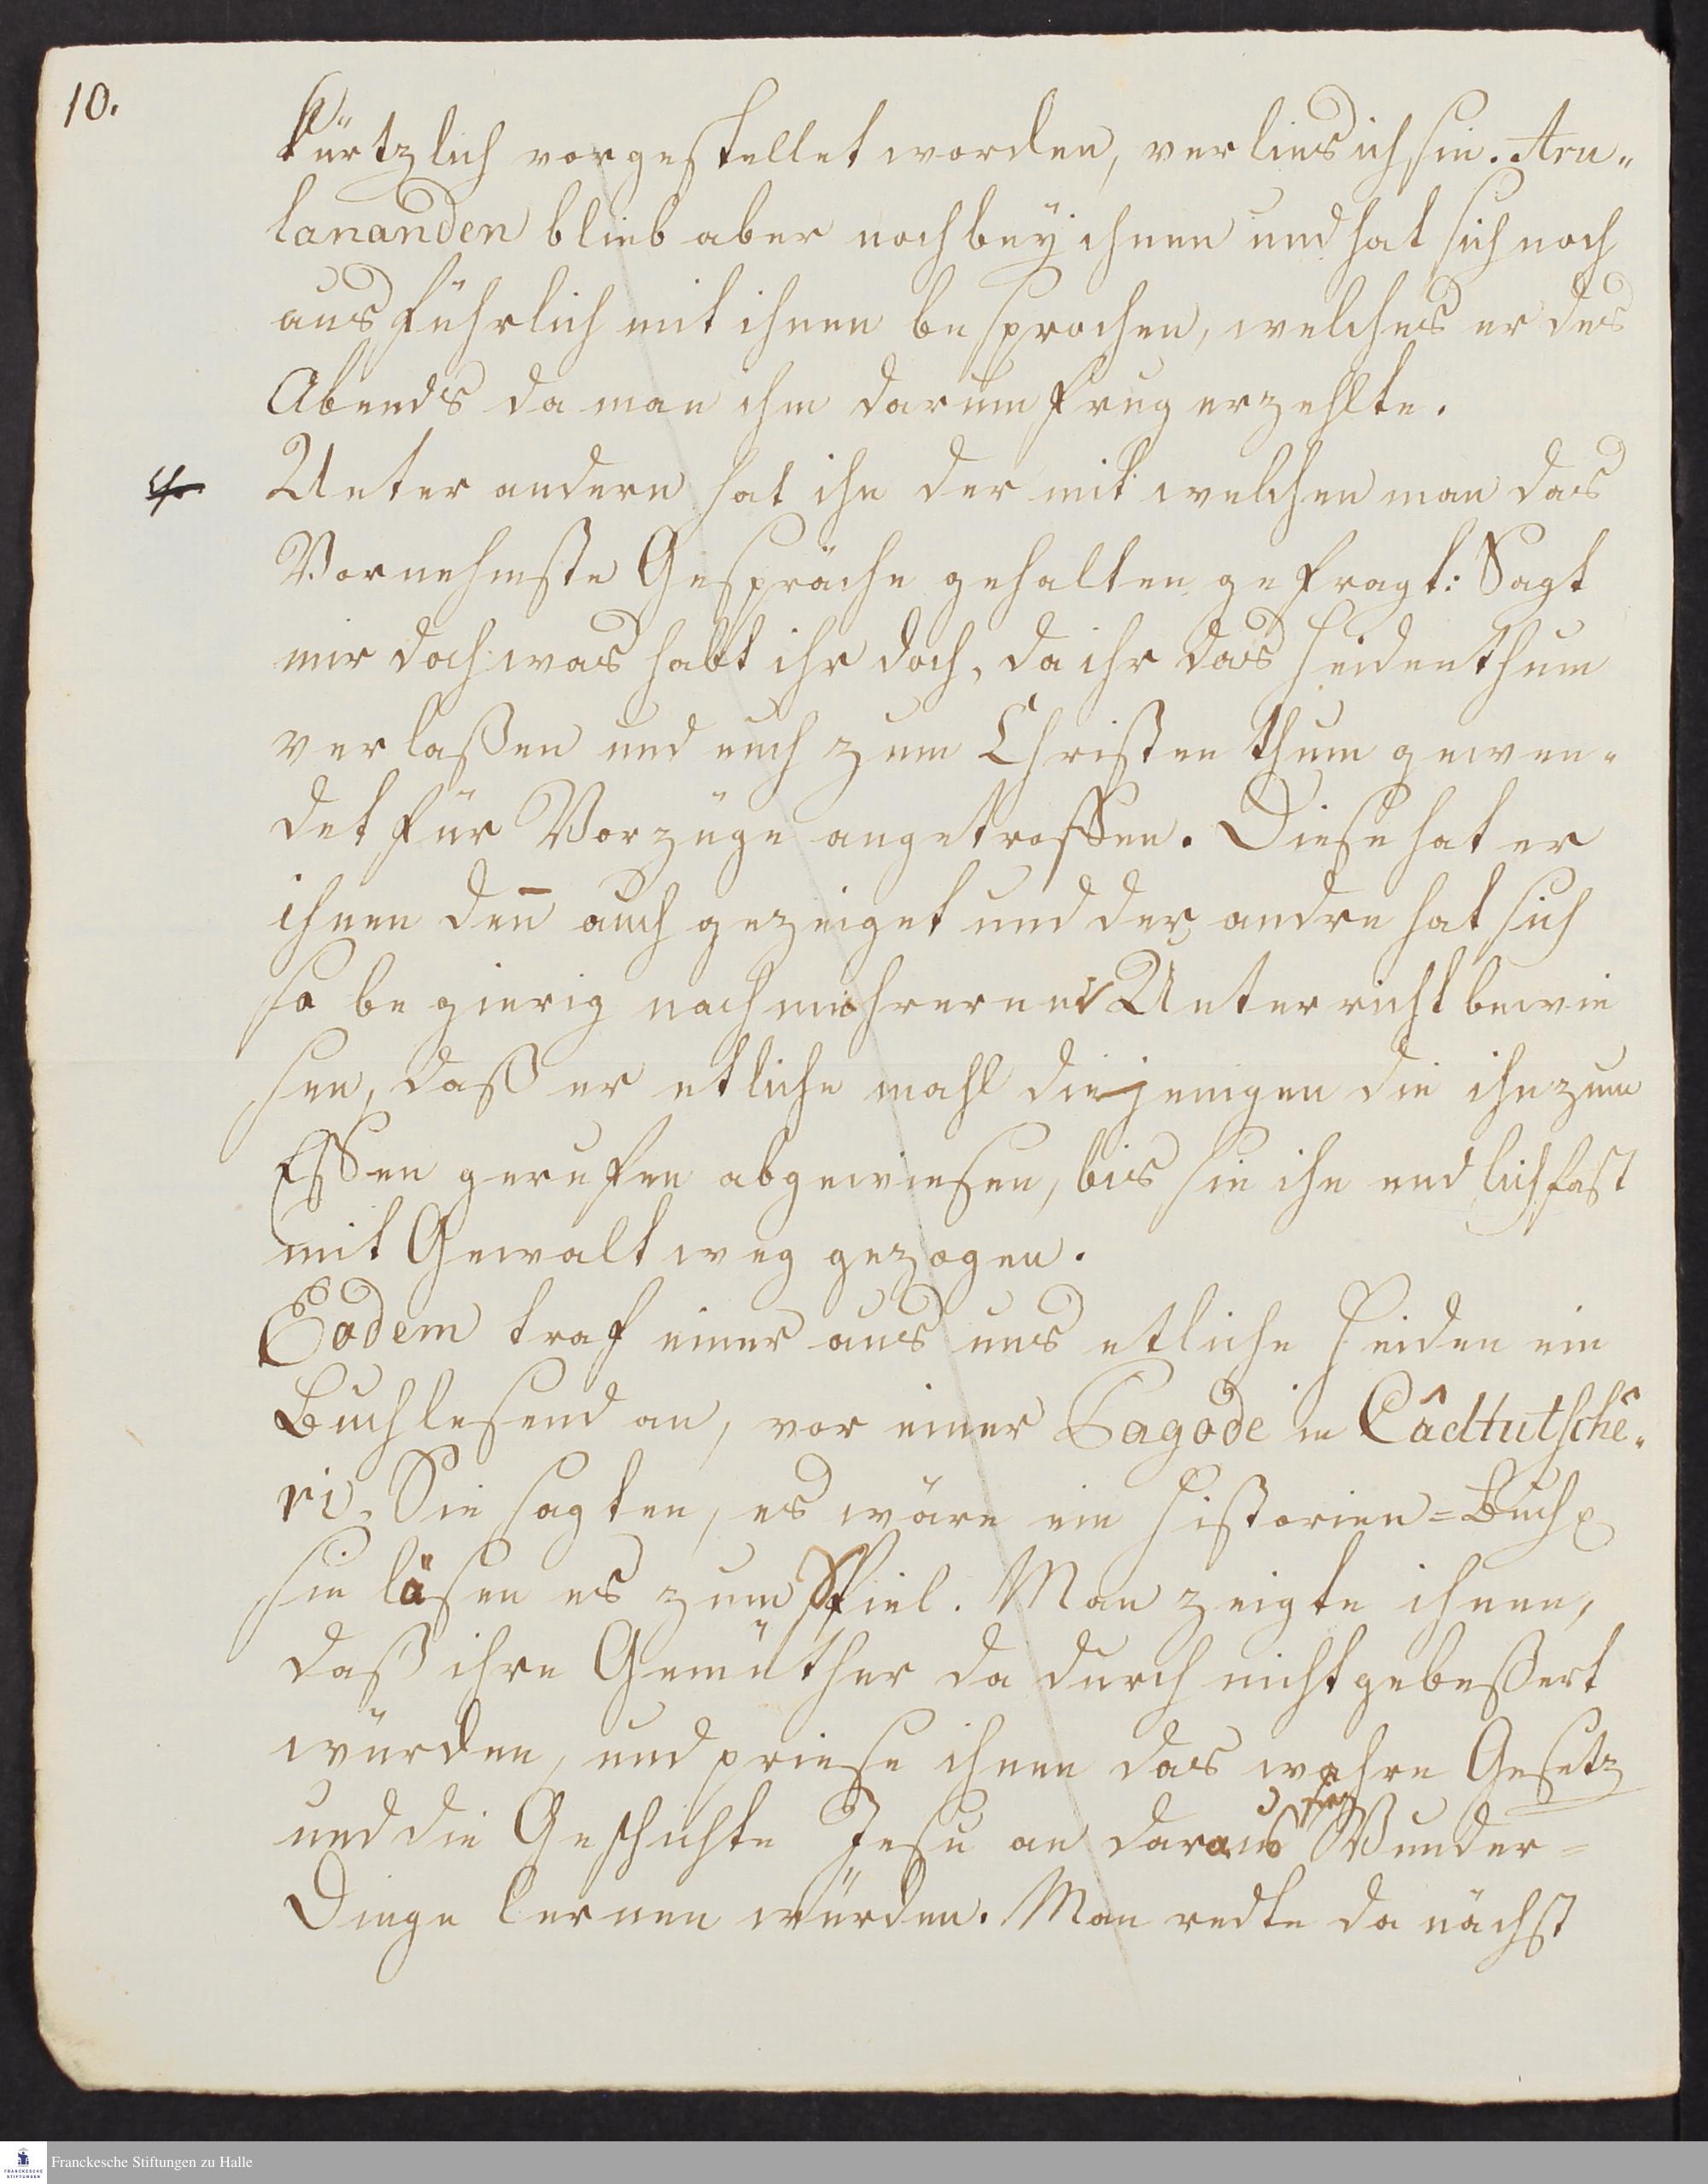 10.
kürtzlich vorgestellet worden, verlies ich sie. Aru„
lananden blieb aber noch beÿ ihnen und hat sich noch
ausführlich mit ihnen besprochen, welches er des
Abends da man ihm darum frug erzehlte.
Unter andern hat ihn der mit welchen man das
Vornehmste Gespräche gehalten gefragt: Sagt
mir doch was habt ihr doch, da ihr das Heidenthum
verlaßen und euch zum Christenthum gewen„
det für Vorzüge angetroffen. Diese hat er
ihnen den̄ auch gezeiget und der andre hat sich
so begierig nach mehreren Unterricht bewie
sen, daß er etliche mahl diejenigen die ihn zum
Essen gerufen abgewiesen, bis sie ihn endlich fast
mit Gewalt weg gezogen.
Eodem traf einer aus uns etliche Heiden ein
Buch lesend an, vor einer Pagode in Câdtutschê„
ri. Sie sagten, es wäre ein Historien=Buch
sie läsen es zum Spiel. Man zeigte ihnen,
daß ihre Gemüther da durch nicht gebeßert
würden, und priese ihnen das wahre Gesetz
und die Geschichte Jesu an daraus sie Wunder=
Dinge lernen würden. Man redte da nächst
Franckesche Stiftungen zu Halle
FRANCKESCHE
STIFTUNGEN